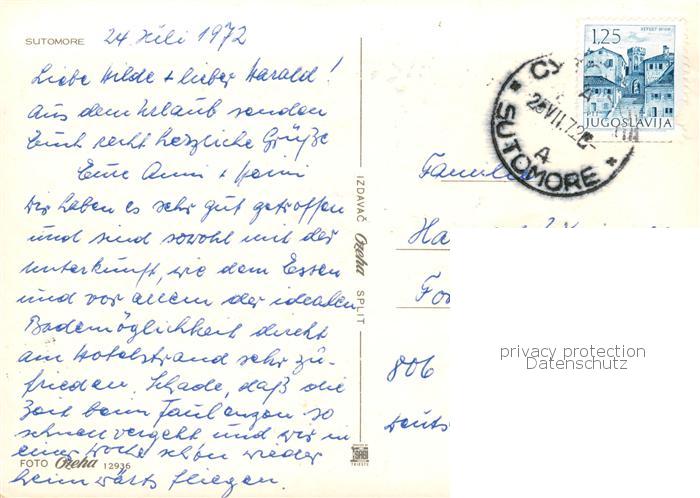 SUTOMORE
24 Juli 1972
Liebe Hilde + lieber Harald!
Aus dem Urlaub senden
Euch recht herzliche Grüße
Eure Anni + Heini
Wir haben es sehr gut getroffen
und sind sowohl mit der
Unterkunft, wie dem Essen
und vor allem der idealen
Bademöglichkeit direkt
am Hotelstrand sehr zu-
frieden. Schade, daß die
Zeit beim Faulenzen so
schnell vergeht und wir in
einer Woche schon wieder
heimwärts fliegen.
FOTO Ozeha 12936
IZDAVAČ Ozeha SPLIT
TRIESTE
1.25
JUGOSLAVIJA
SUTOMORE
A
Familie
Ha
For
806
Deuts
privacy protection
Datenschutz